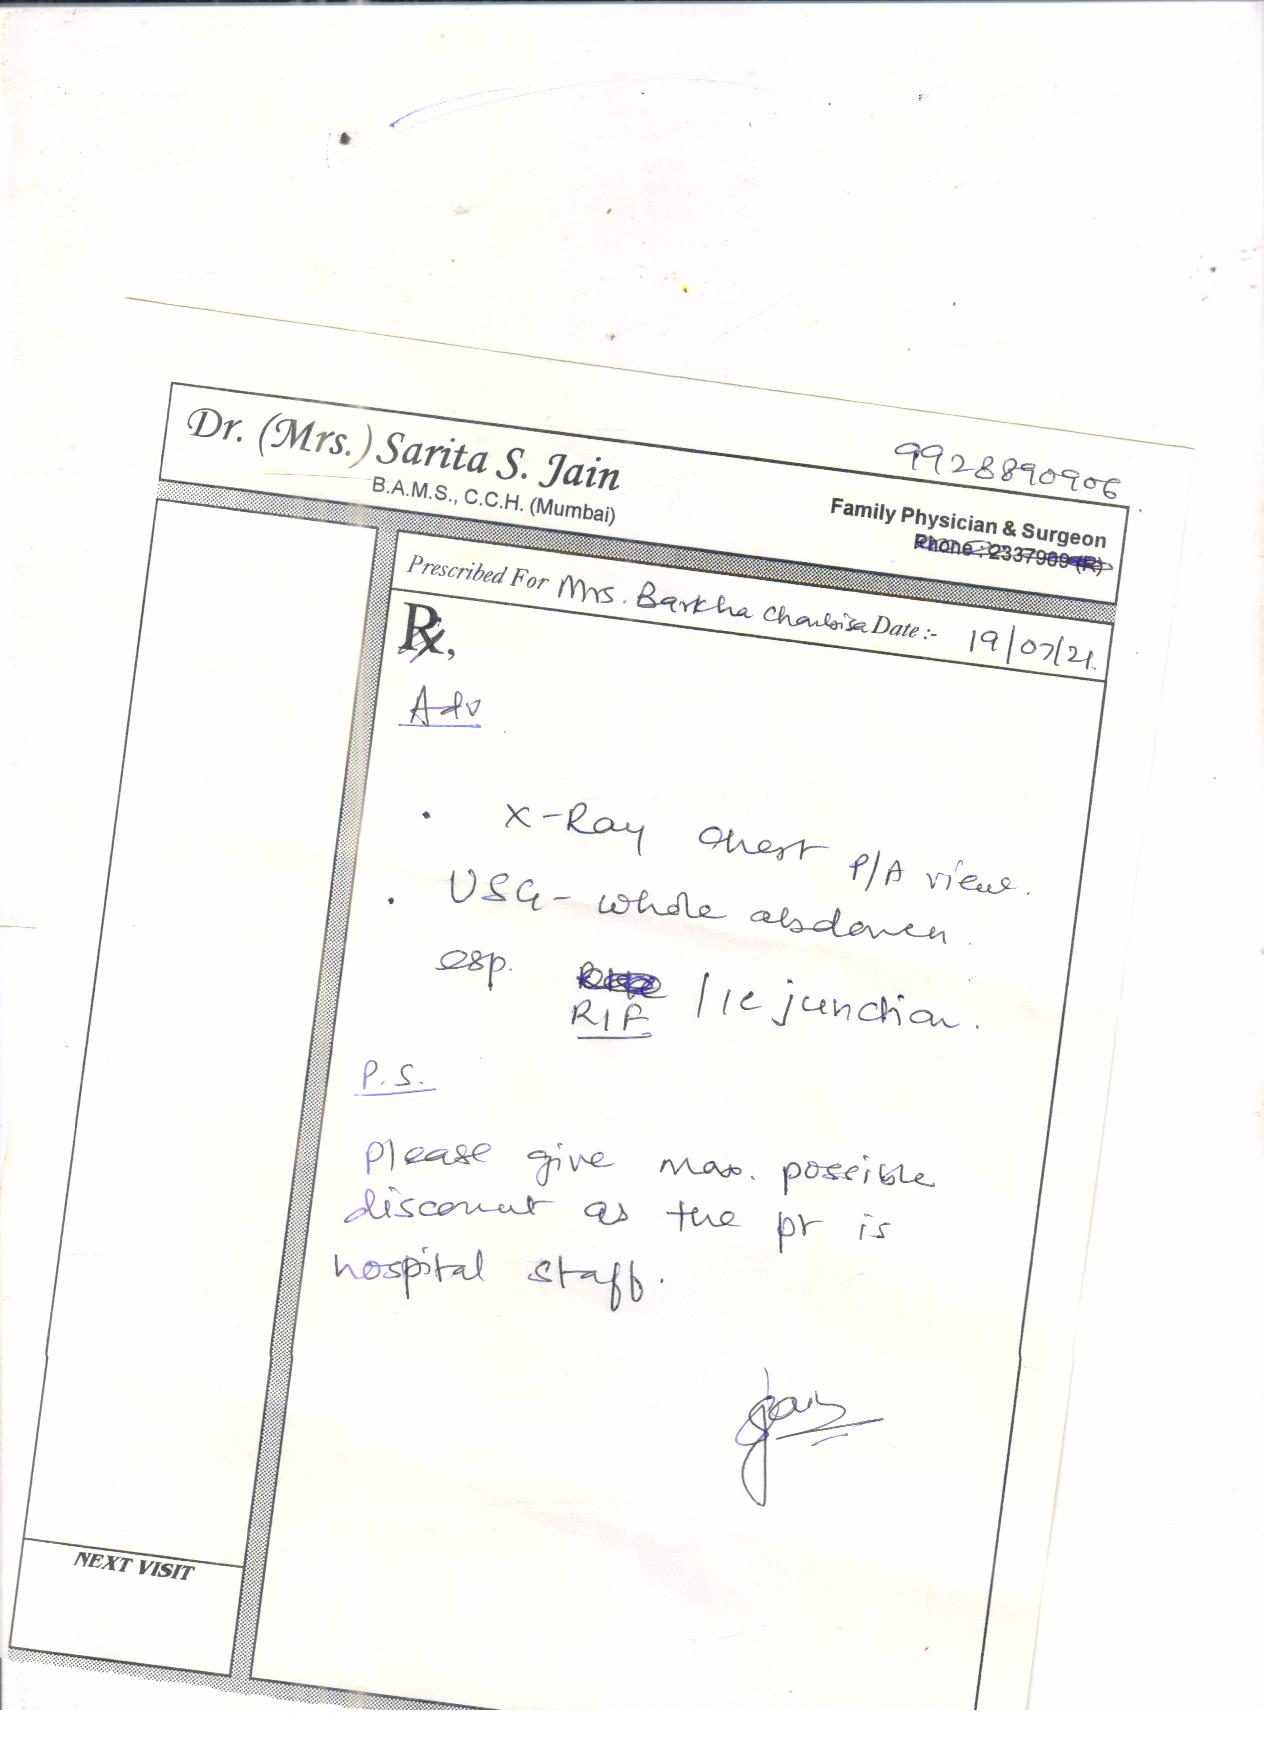 Dr. (Mrs.) Sarita S. Jain
B.A.M.S., C.C.H. (Mumbai)
9928890906
Family Physician & Surgeon
Phone : 2337909 (R)
Prescribed For Mrs. Barkha Date :- 19/07/21.
Rx,
Adv
. X-Ray chest P/A view.
. USG - whole abdomen.
esp. RIF / IC junction.
P.S.
Please give max. possible
discount as the pt is
hospital staff.
Jain
NEXT VISIT